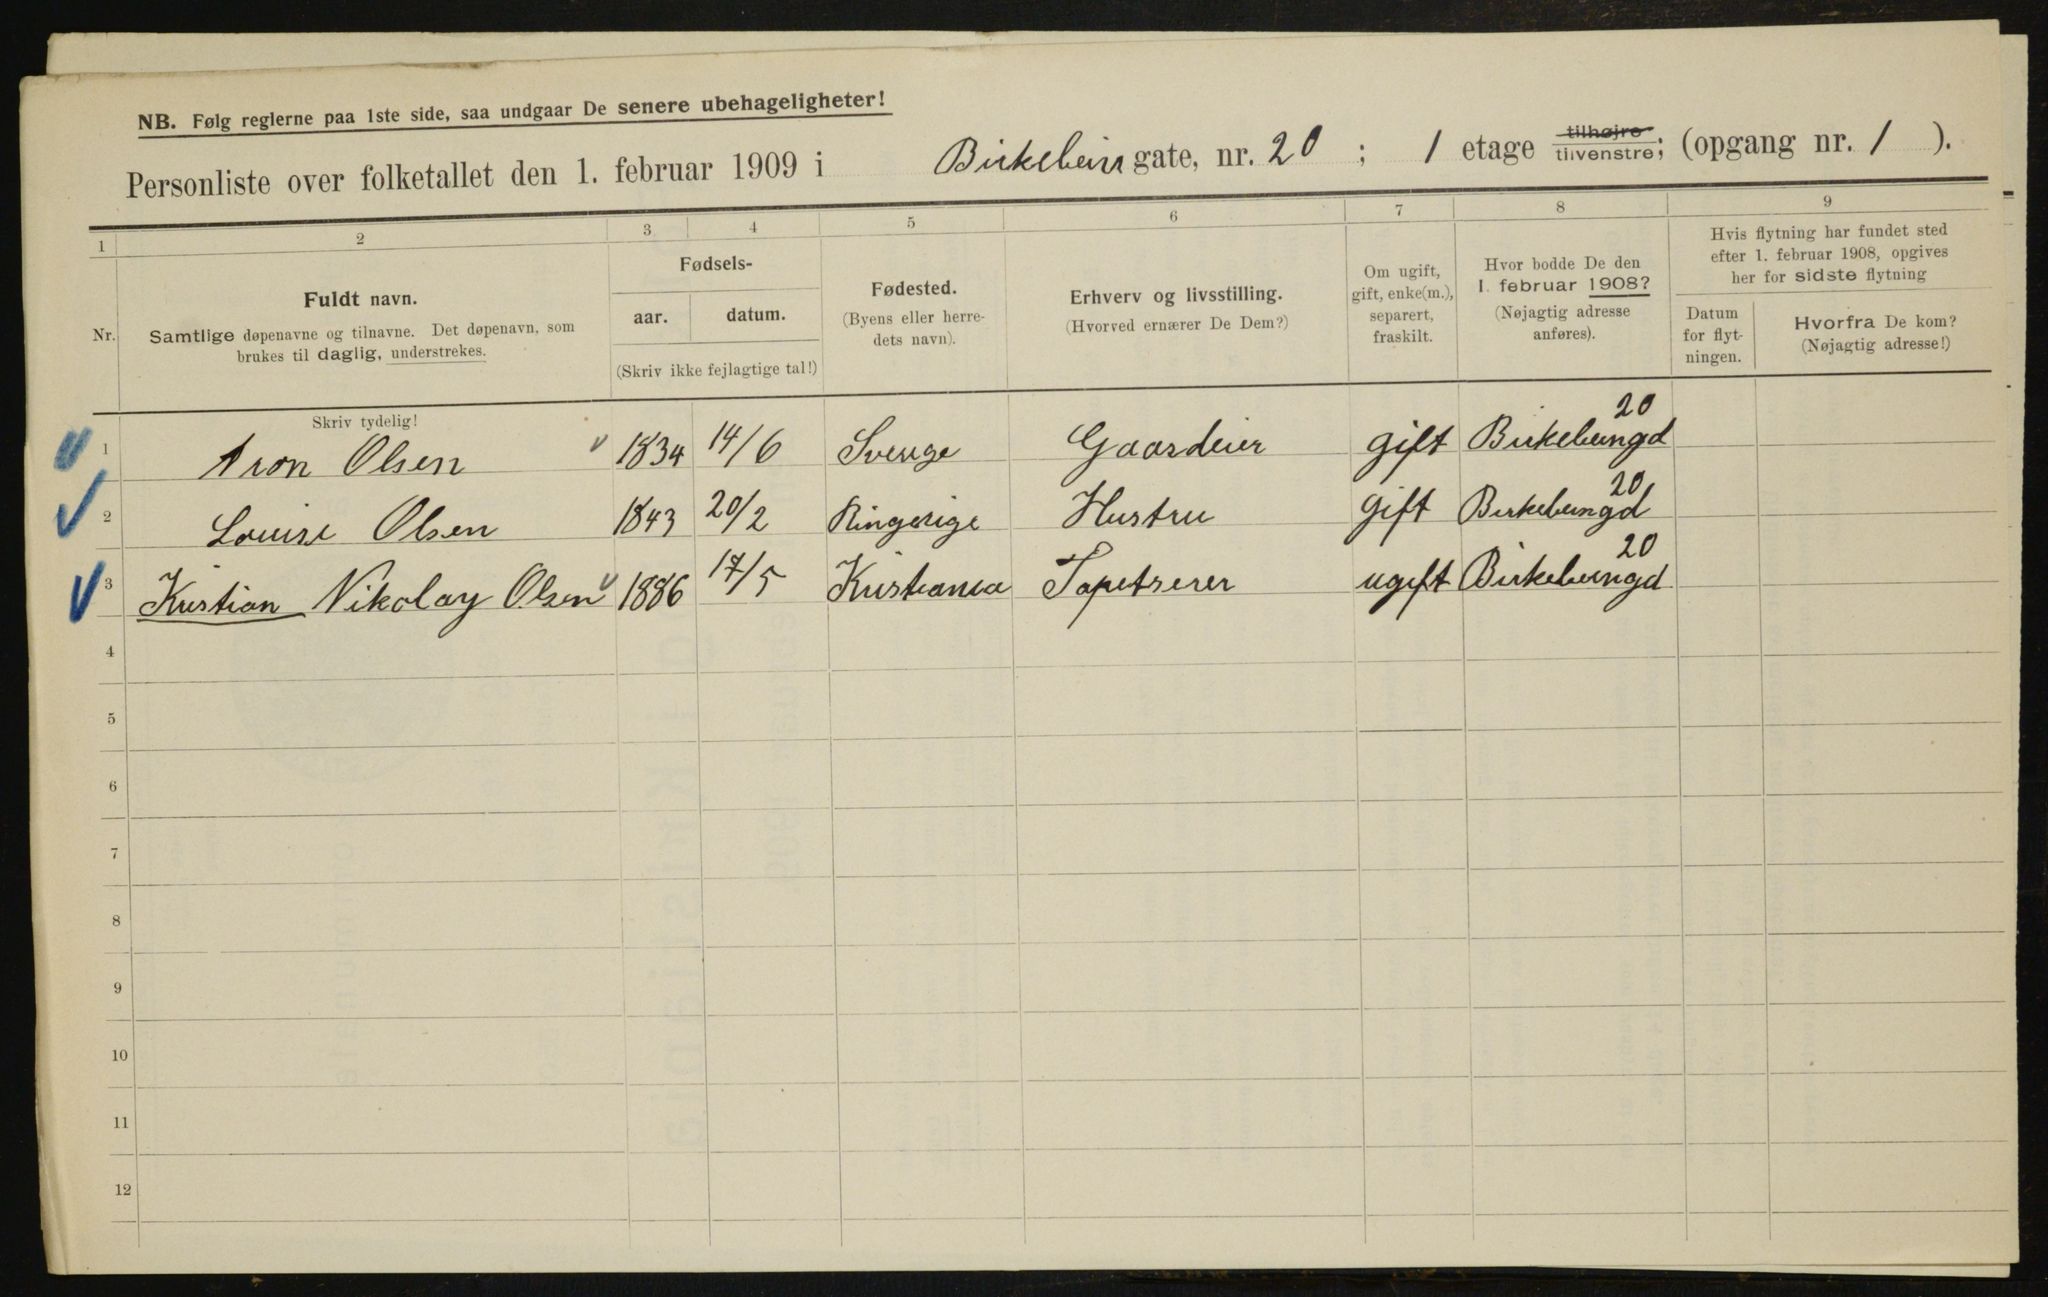 NB. Følg reglerne paa 1ste side, saa undgaar De senere ubehageligheter!
Personliste over folketallet den 1. februar 1909 i Birkebeinergate, nr. 20 ; 1 etage tilhøjre tilvenstre; (opgang nr. 1 ).
1 2 3 4 5 6 7 8 9
Nr.
Fuldt navn.
Samtlige døpenavne og tilnavne. Det døpenavn, som
brukes til daglig, understrekes.
Fødsels-
aar. datum.
(Skriv ikke fejlagtige tal!)
Fødested.
(Byens eller herre-
dets navn).
Erhverv og livsstilling.
(Hvorved ernærer De Dem?)
Om ugift,
gift, enke(m.),
separert,
fraskilt.
Hvor bodde De den
1. februar 1908?
(Nøjagtig adresse
anføres).
Hvis flytning har fundet sted
efter 1. februar 1908, opgives
her for sidste flytning
Datum
for flyt-
ningen.
Hvorfra De kom?
(Nøjagtig adresse!)
Skriv tydelig!
1 Aron Olsen 1834 14/6 Sverige Gaardeier gift Birkebeingd 20
2 Louise Olsen 1843 20/2 Ringerige Hustru Gift Birkebeingd 20
3 Kristian Nikolay Olsen 1886 17/5 Kristiania Tapetserer ugift Birkebeingd 20
4
5
6
7
8
9
10
11
12